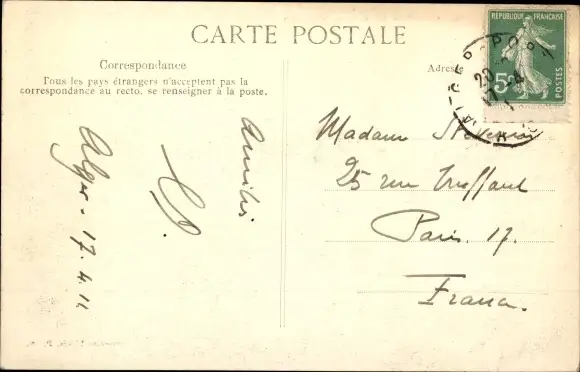 CARTE POSTALE
Correspondance
Tous les pays étrangers n'acceptent pas la
correspondance au recto, se renseigner à la poste.
Alger. 17.4.11
Adresse
REPUBLIQUE FRANÇAISE
5c
POSTES
Madame
25 rue Truffaut
Paris. 17.
France.